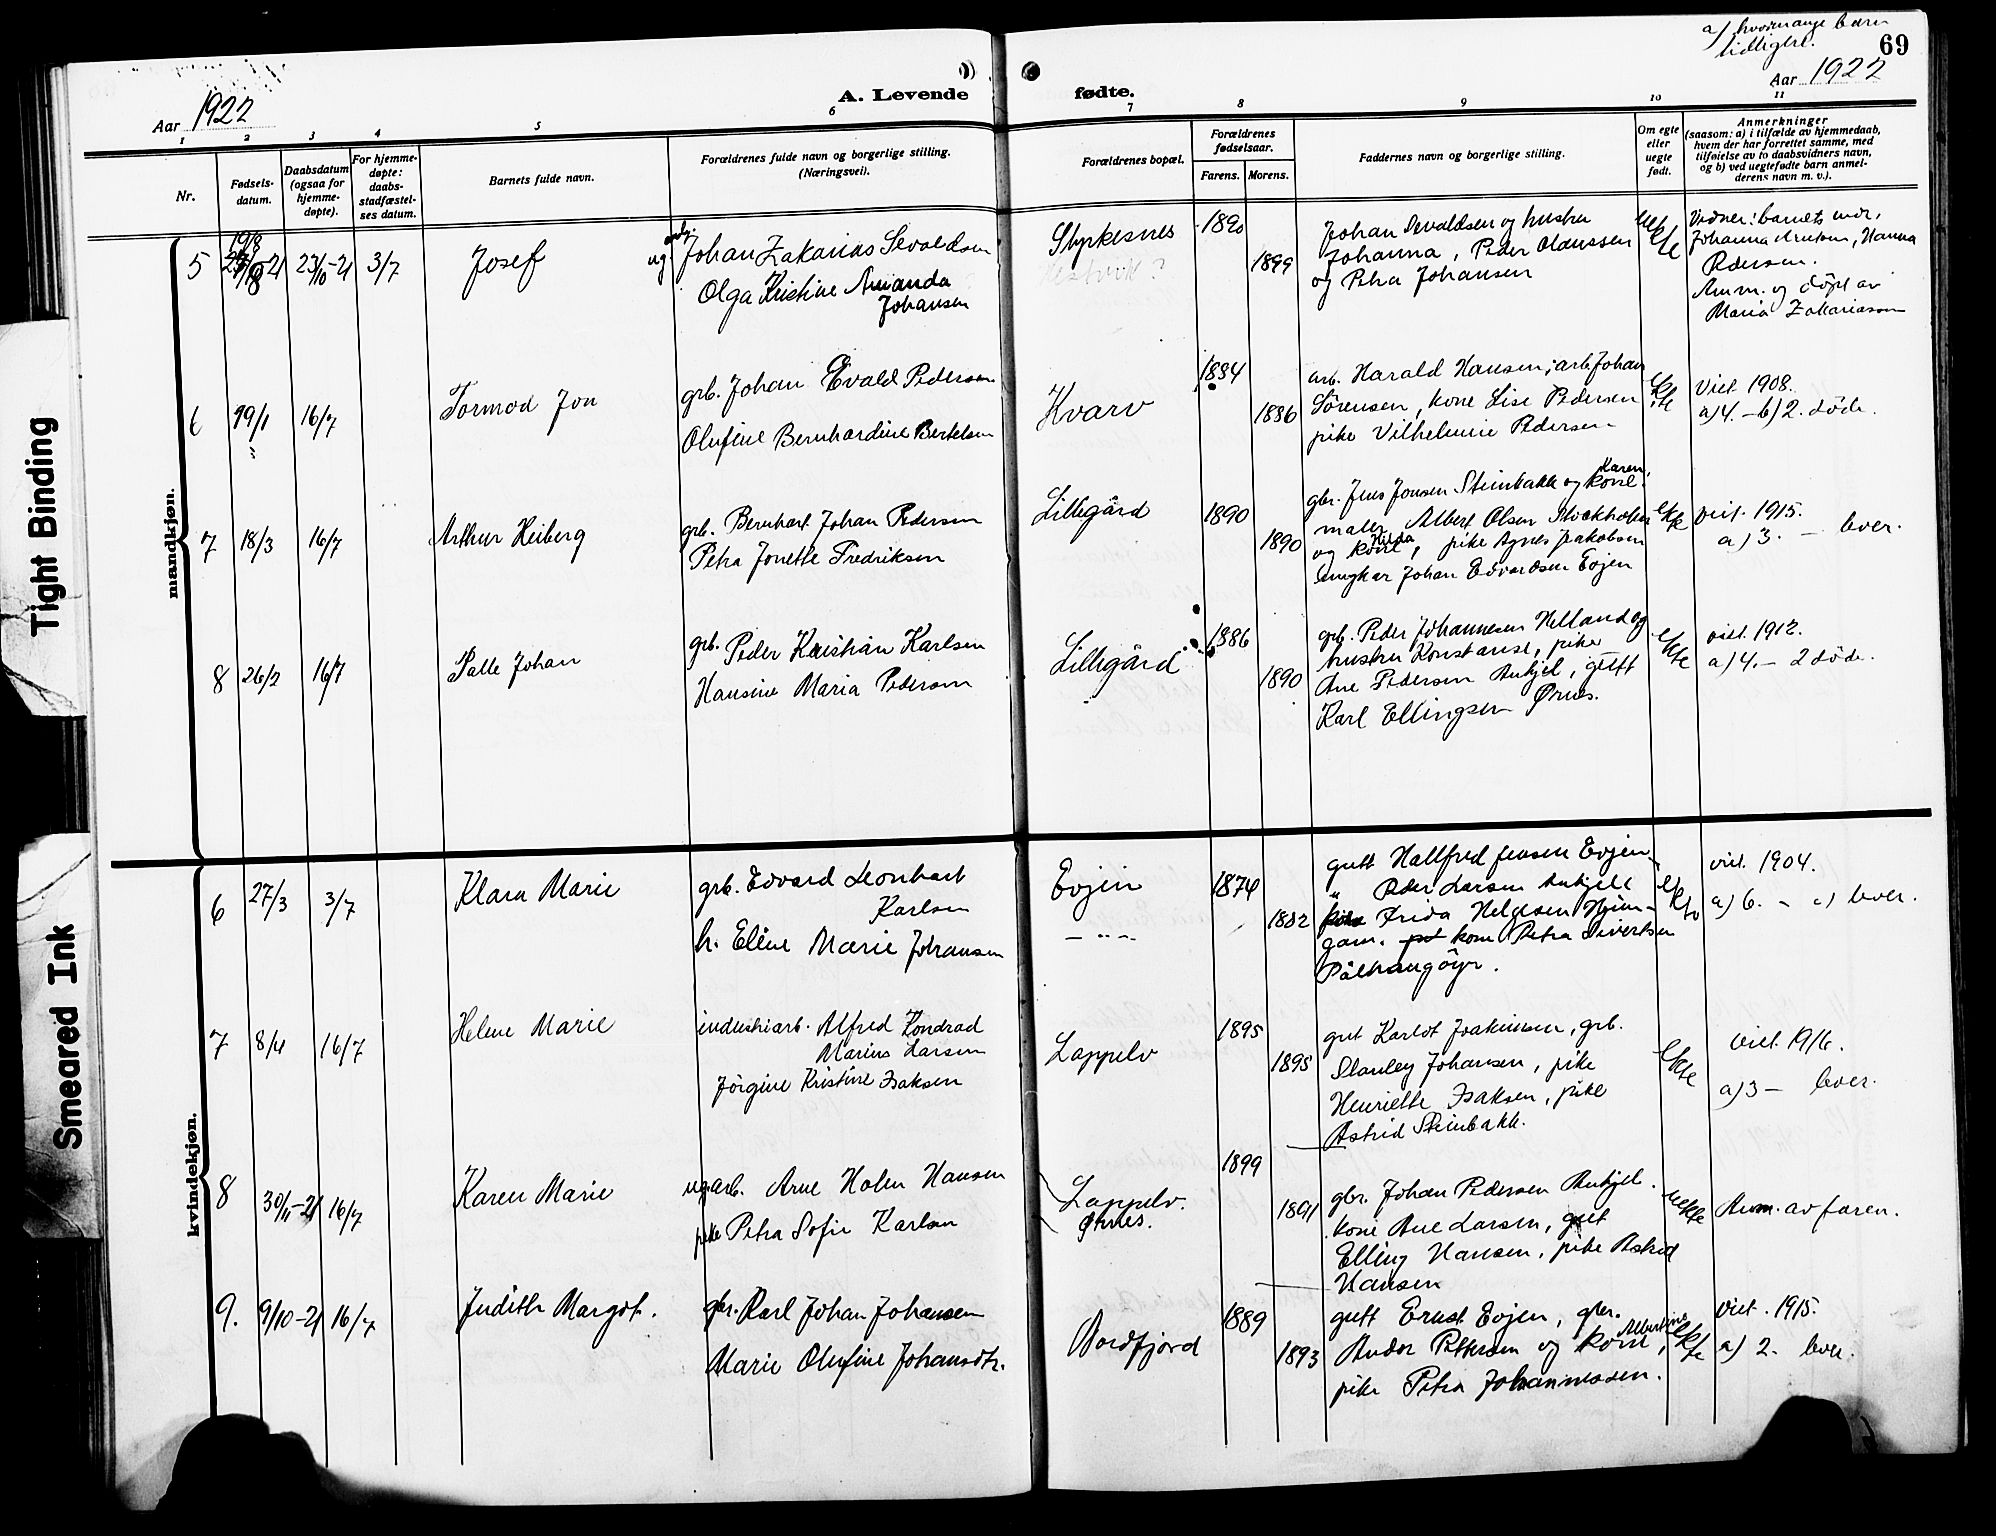 a) hvormange barn
tidligere.
69
Aar 1922
Aar 1922
A. Levende fødte.
1 2 3 4 5 6 7 8 9 10 11
Nr.
Fødsels-
datum.
Daabsdatum
(ogsaa for
hjemme-
døpte).
For hjemme-
døpte:
daabs-
stadfæstel-
ses datum.
Barnets fulde navn.
Forældrenes fulde navn og borgerlige stilling.
(Næringsvei).
Forældrenes bopæl.
Forældrenes
fødselsaar.
Farens. Morens.
Faddernes navn og borgerlige stilling.
Om egte
eller
uegte
født.
Anmerkninger
(saasom: a) i tilfælde av hjemmedaab,
hvem der har forrettet samme, med
tilføielse av to daabsvidners navn,
og b) ved uegtefødte barn anmel-
derens navn m. v.).
mandkjøn.
5 23/10-21 3/7 Josef
ug Johan Zakarias Sevaldsen
Olga Kristine Amanda
Johansen
Styrkesnes
1890
1899
Johan Sevaldsen og hustru
Johanna, Peder Olaussen
og Petra Johansen
Uekte
Vidner: barnets mor,
Johanna Arntsen, Hanna
Pedersen.
Anm. og döpt av
Maria Zakariassen
6 19/1 16/7 Tormod Jon
grb. Johan Evald Pedersen
Olufine Bernhardine Bertelsen
Kvarv
1884
1886
arb. Harald Hansen, arb. Johan
Sörensen, kone Lise Pedersen
pike Vilhelmine Pedersen
Ekte
Viet 1908.
a) 4. – b) 2. döde.
7 18/3 16/7 Arthur Heiberg
grb. Bernhart Johan Pedersen
Petra Jonette Fredriksen
Lillegård
1890
1890
gbr. Jens Jonsen Steinbakk og kone Karen,
maler Albert Olsen Stockholm
og kone Hilda, pike Agnes Jakobsen
ungkar Johan Edvardsen Evjen
Ekte
viet. 1915.
a) 3. – lever.
8 26/2 16/7 Palle Johan
grb. Peder Kristian Karlsen
Hansine Maria Pedersen
Lillegård
1886
1890
grb. Peder Johannesen Helland og
hustru Konstanse, pike
Ane Pedersen Ankjel, gutt
Karl Ellingsen Ørnes.
Ekte
viet. 1912.
a) 4. – 2 döde.
kvindekjøn.
6 27/3 3/7 Klara Marie
grb. Edvard Leonhart
Karlsen
h. Eline Marie Johansen
Evjen
– " –
1874
1882
gutt Hallfred Jensen Evjen
" Peder Larsen Ankjell
Frida Helgesen Hjem-
gam. kone Petra Sivertsen
Pålhaugöyr.
Ekte
viet. 1904.
a) 6. – lever.
7 8/4 16/7 Helene Marie
industriarb. Alfred Kondrad
Marius Larsen
Jörgine Kristine Isaksen
Lappelv
1895
1895
gut Karlot Joakimsen, grb.
Stanley Johansen, pike
Henriette Isaksen, pike
Astrid Steinbakk.
Ekte
viet. 1916.
a) 3 – lever.
8 30/11-21 16/7 Karen Marie
ug. arb. Arne Holm Hansen
pike Petra Sofie Karlsen
Lappelv.
Ørnes.
1899
1891
gbr. Johan Pedersen Ankjel.
kone Ane Larsen, gut
Elling Hansen, pike Astrid
Hansen
uekte
Anm. av faren.
9. 9/10-21 16/7 Judith Margot.
gbr. Karl Johan Johansen
Marie Olufine Johansdtr.
Nordfjord
1889
1893
gutt Ernst Evjen, gbr.
Andor Pettersen og kone Albertine,
pike Petra Johannessen.
Ekte
Viet. 1915.
a) 2. lever.
Tight Binding
Smeared Ink